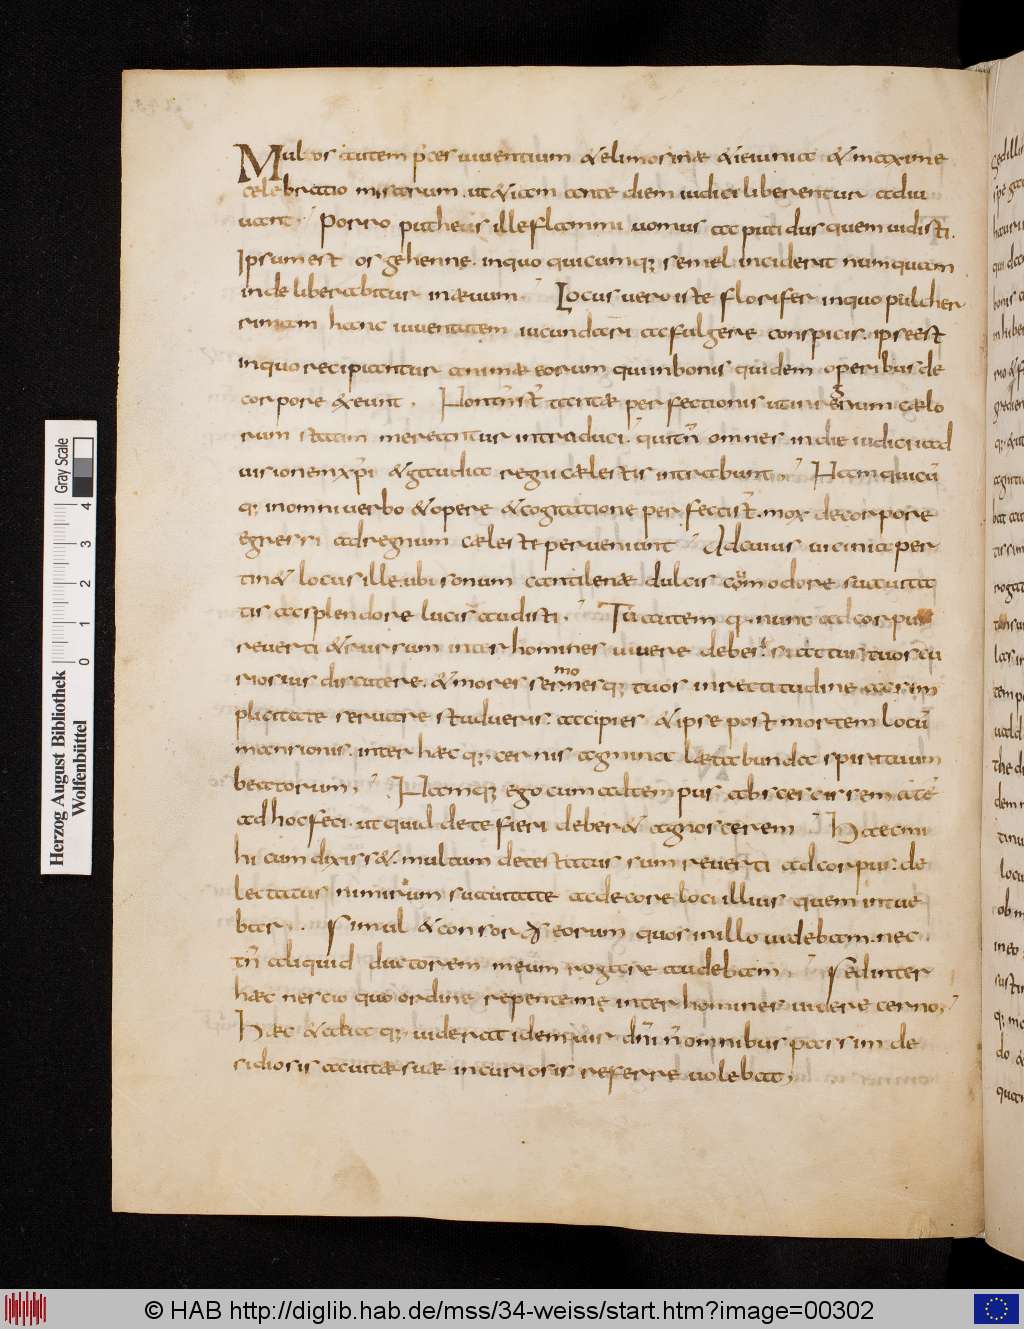 Multos autem p̄ces uiuentium & elimosinæ & ieiunia & maxime
celebratio missarum. ut & iam ante diem iudicii liberentur adiu
uant. Porro putheus ille flammi uomus ac putidus quem uidisti.
Ipsum est os gehenne. in quo quicumq; semel inciderit numquam
inde liberabitur in æuum. Locus uero iste florifer in quo pulcher
rimam hanc iuuentutem iucundari ac fulgere conspicis. ipse est
in quo recipiuntur animæ eorum qui in bonis quidem operibus de
corpore exeunt. Non tam̄ st̄ tantæ perfectionis ut in regnum cælo
rum statim mereantur introduci. qui tn̄ omnes in die iudicii ad
uisionem xp̄i & gaudia regni cælestis intrabunt. Nam quicū
q; in omni uerbo & opere & cogitatione perfecti st̄. mox de corpore
egressi ad regnum cæleste perueniunt. Ad cuius uicinia per
tin& locus ille. ubi sonum cantilenæ dulcis com odore suauita
tis ac splendore lucis audisti. Tu autem q; nunc ad corpus
reuerti & rursum inter homines uiuere debes. si actus tuos cu
riosius discutere. & mores sermonesq; tuos in rectitudine ac sim
plicitate seruare studueris. accipies & ipse post mortem locū
mansionis. inter hæc q; cernis agmina lætabunda spirituum
beatorum. Namq; ego cum ad tempus abscessissem a te
ad hoc feci. ut quid de te fieri deber& agnoscerem. Hæc mi
hi cum dixiss&. multum detestatus sum reuerti ad corpus. de
lectatus nimirum suauitate ac decore loci illius quem intue
bar. Simul & consortio eorum quos in illo uidebam. nec
tn̄ aliquid ductorem meum rogare audebam. Sed inter
hæc nescio quo ordine repente me inter homines uidere cerno.
Hæc & alia q; uiderat idem uir dn̄i n̄ omnibus passim de
sidiosis ac uitæ suæ incuriosis referre uolebat.
Herzog August Bibliothek
Wolfenbüttel
Gray Scale
0 1 2 3 4
© HAB http://diglib.hab.de/mss/34-weiss/start.htm?image=00302